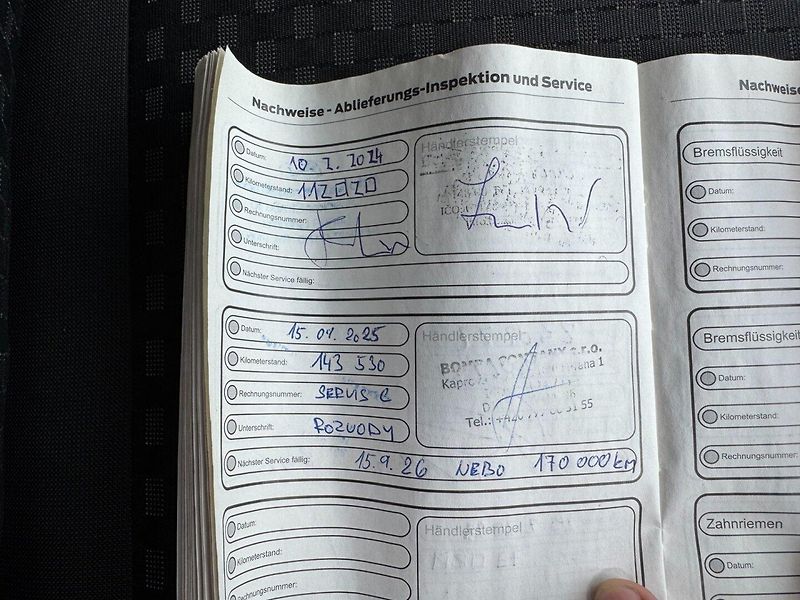 Nachweise - Ablieferungs-Inspektion und Service
Datum: 10. 2. 2024
Kilometerstand: 112020
Rechnungsnummer:
Unterschrift:
Nächster Service fällig:
Händlerstempel
IČO:
Datum: 15. 04. 2025
Kilometerstand: 143 530
Rechnungsnummer: SERVIS C
Unterschrift: ROZVODY
Nächster Service fällig: 15.9.26 NEBO 170 000 km
Händlerstempel
COMPANY s.r.o.
1
Tel.: +420 55
Datum:
Kilometerstand:
Rechnungsnummer:
Händlerstempel
Nachweise
Bremsflüssigkeit
Datum:
Kilometerstand:
Rechnungsnummer:
Bremsflüssigkeit
Datum:
Kilometerstand:
Rechnungsnummer:
Zahnriemen
Datum: